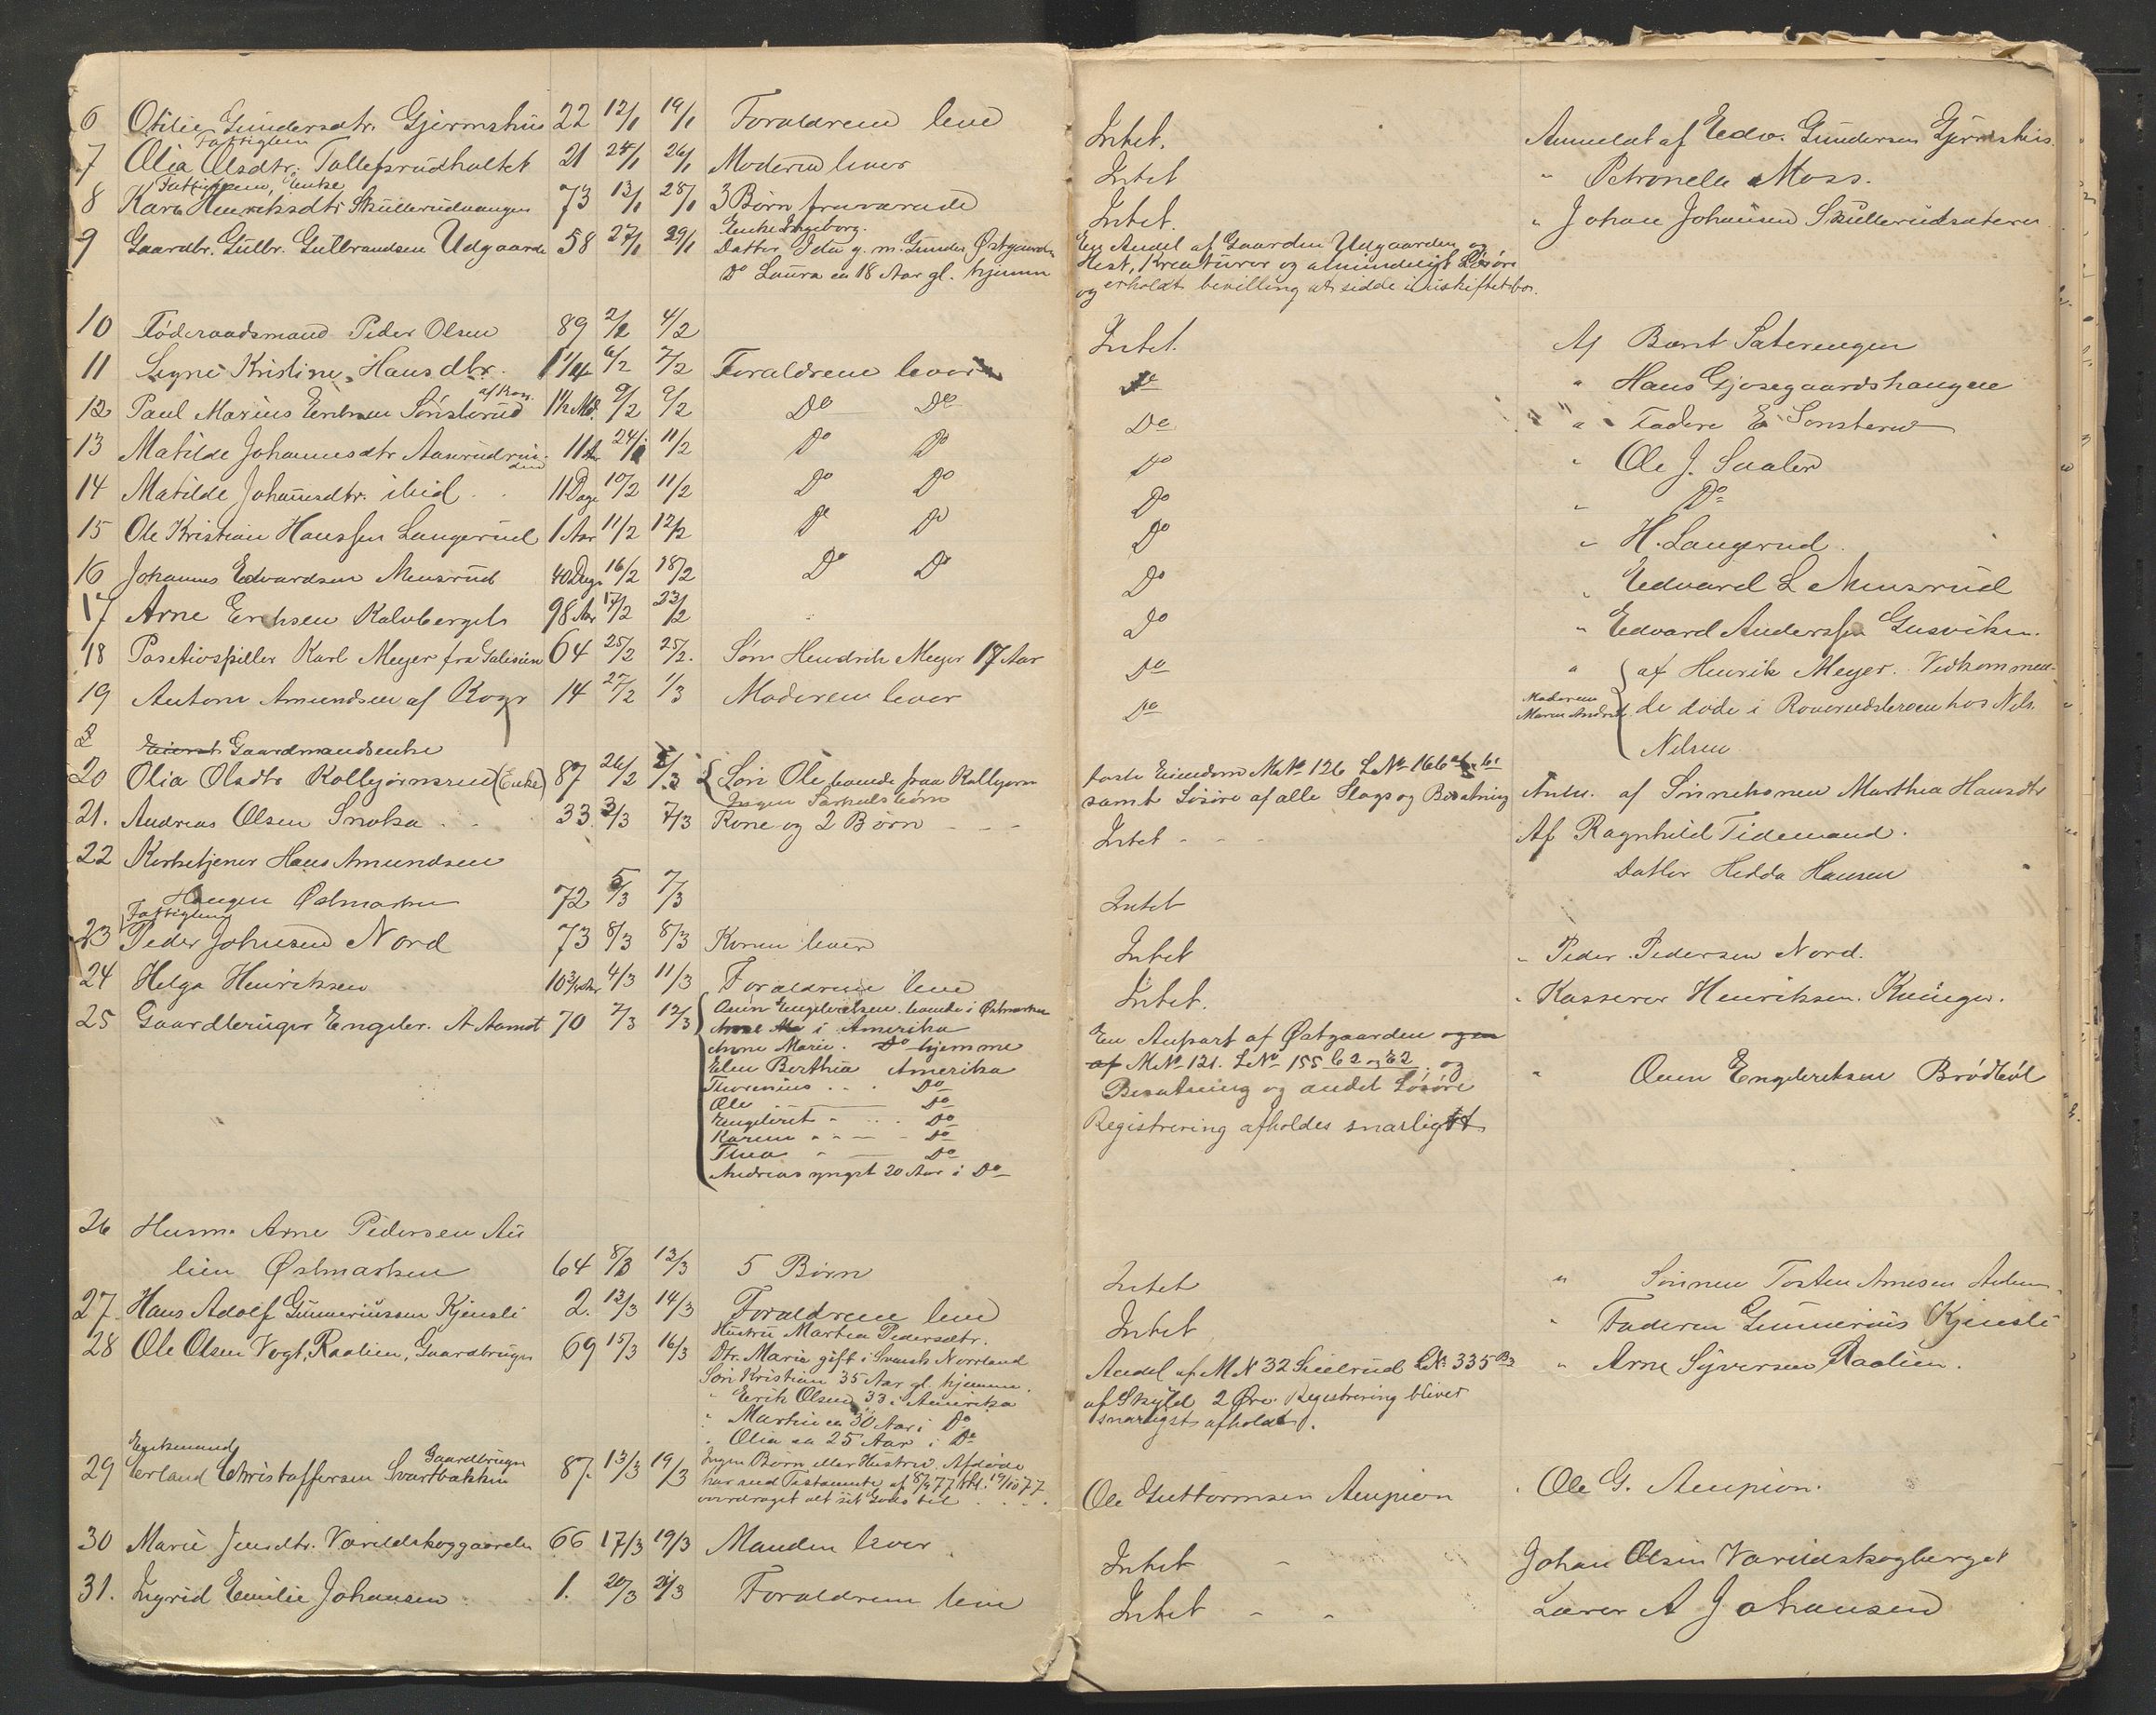 6 Otilie Gundersdtr. Gjermshus 22 12/1 19/1 Forældrene leve Intet. Anmeldt af Edv. Gundersen Gjermshus
Fattiglem
7 Olia Olsdtr. Tollefsrudholtet 21 24/1 26/1 Moderen lever Intet " Petronelle Moss.
Fattiglem, Enke
8 Kari Henriksdtr Skullerudvangen 73 13/1 28/1 3 Børn fraværende Intet. " Johan Johansen Skullerudsæteren
Enke Ingeborg.
9 Gaardbr. Gulbr. Gulbrandsen Udgaarde 58 27/1 29/1 Datter Idea g. m. Gunder Østgaarden En Andel af Gaarden Udgaarden og
Do Laura ca 18 Aar gl. hjemme Hest, Kreaturer og almindeligt Løsøre
og erholdt bevilling at sidde i uskiftet bo.
10 Föderaadsmand Peder Olsen 89 2/2 4/2 Intet. Af Bernt Sæterengen
11 Signe Kristine Hansdtr. 1 1/4 6/2 7/2 Forældrene lever Do " Hans Gjøsegaardshaugen
af Kon.
12 Paul Marius Eriksen Sönsterud 1 1/2 Md. 9/2 9/2 Do Do Do " Fadere E Sønsterud
13 Matilde Johannesdtr Aasrud 11 24/1 11/2 Do Do Do " Ole J. Saaler
14 Matilde Johansdtr. ibid 11 Dage 10/2 11/2 Do Do Do " Do
15 Ole Kristian Hanssen Langerud 1 Aar 11/2 12/2 Do Do Do " H. Langerud
16 Johannes Edvardsen Mensrud 40 Dage 16/2 18/2 Do Do Do " Edvard L Mensrud
17 Arne Eriksen Kalvberget 98 Aar 17/2 23/2 Do " Edvard Anderssen Gusviken.
18 Positivspiller Karl Meyer fra Galisien 64 25/2 25/2. Søn Hendrik Meyer 17 Aar Do " af Henrik Meyer. Vedkommen-
19 Anton Amundsen af Kogr 14 27/2 1/3 Moderen lever Do Moderen Maren Andrsd. de døde i Roverudsbroen hos Nils
Nilsen
Gaardmandsenke
20 Olia Olsdtr Kolbjørnsrud (Enke) 87 26/2 5/3 Søn Ole, boende paa Kolbjørn faste Eiendom MNo 126 LNo 166
Ingen Særkulsbörn samt Løsøre af alle Slags og Besætning Anm. af Sönnekonen Marthea Hansdtr
21. Andreas Olsen Snoka 33 3/3 7/3 Kone og 2 Børn Intet Af Ragnhild Tidemand.
22 Kirketjener Hans Amundsen Datter Hedda Hansen
Haugen Østmarken 72 5/3 7/3 Intet
Fattiglem
23 Peder Johnsen Nord 73 8/3 8/3 Konen lever Intet " Peder Pedersen Nord.
24 Helga Henriksen 10 3/4 Aar 4/3 11/3 Forældrene leve Intet. " Kasserer Henriksen. Kvinger.
25 Gaardbruger Engebr. A Aamot 70 7/3 12/3 Oven Engebretsen boende i Østmarken En Anpart af Østgaarden og en
Arne i Amerika af MNo 121. LNo 155 b2 og E2, og
Anne Marie. Do hjemme Besætning og andet Løsøre " Oven Engebretsen Brödböl
Elen Berthea Amerika Registrering afholdes snarligst
Thorenius Do
Ole Do
Engebret Do
Karen Do
Thea Do
Andreas yngst 20 Aar i Do
26 Husm. Arne Pedersen Au
lien Østmarken 64 8/3 12/3 5 Børn Intet " Sönnen Tosten Arnesen Aulien
27 Hans Adolf Gunneriussen Kjensli 2. 12/3 14/3 Forældrene leve Intet " Faderen Gunnerius Kjensli
Hustru Martea Pedersdtr.
28 Ole Olsen Vogt, Raalien, Gaardbruger 69 15/3 16/3 Dtr. Marie gift i Svensk Norrland Andel af MN 32 Skielrud LN. 335 " Arne Syversen Raalien.
Søn Kristian 35 Aar gl. hjemme. af Skyld 2 Øre. Registrering bliver
" Erik Olsen 33 i Amerika snarligst afholdt.
" Martin ca 30 Aar i Do
" Olia ca 25 Aar i Do
Enkemand Gaardbruger
29 Erland Christoffersen Svartbakken 87. 13/3 19/3 Ingen Børn eller Hustru. Afdøde
har ved Testamente af 8/9 77 tbl. 19/10 77
overdraget alt sit Gods til Ole Guttormsen Aupion " Ole G. Aupion.
30 Marie Jensdtr. Varaldskoggaarden 66 17/3 19/3 Manden lever Intet Johan Olsen Varaldskogberget
31. Ingrid Emilie Johansen 1. 20/3 21/3 Forældrene leve Intet Lærer A Johansen